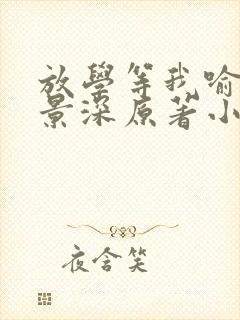 放學等我喻
景深原著小
夜含笑